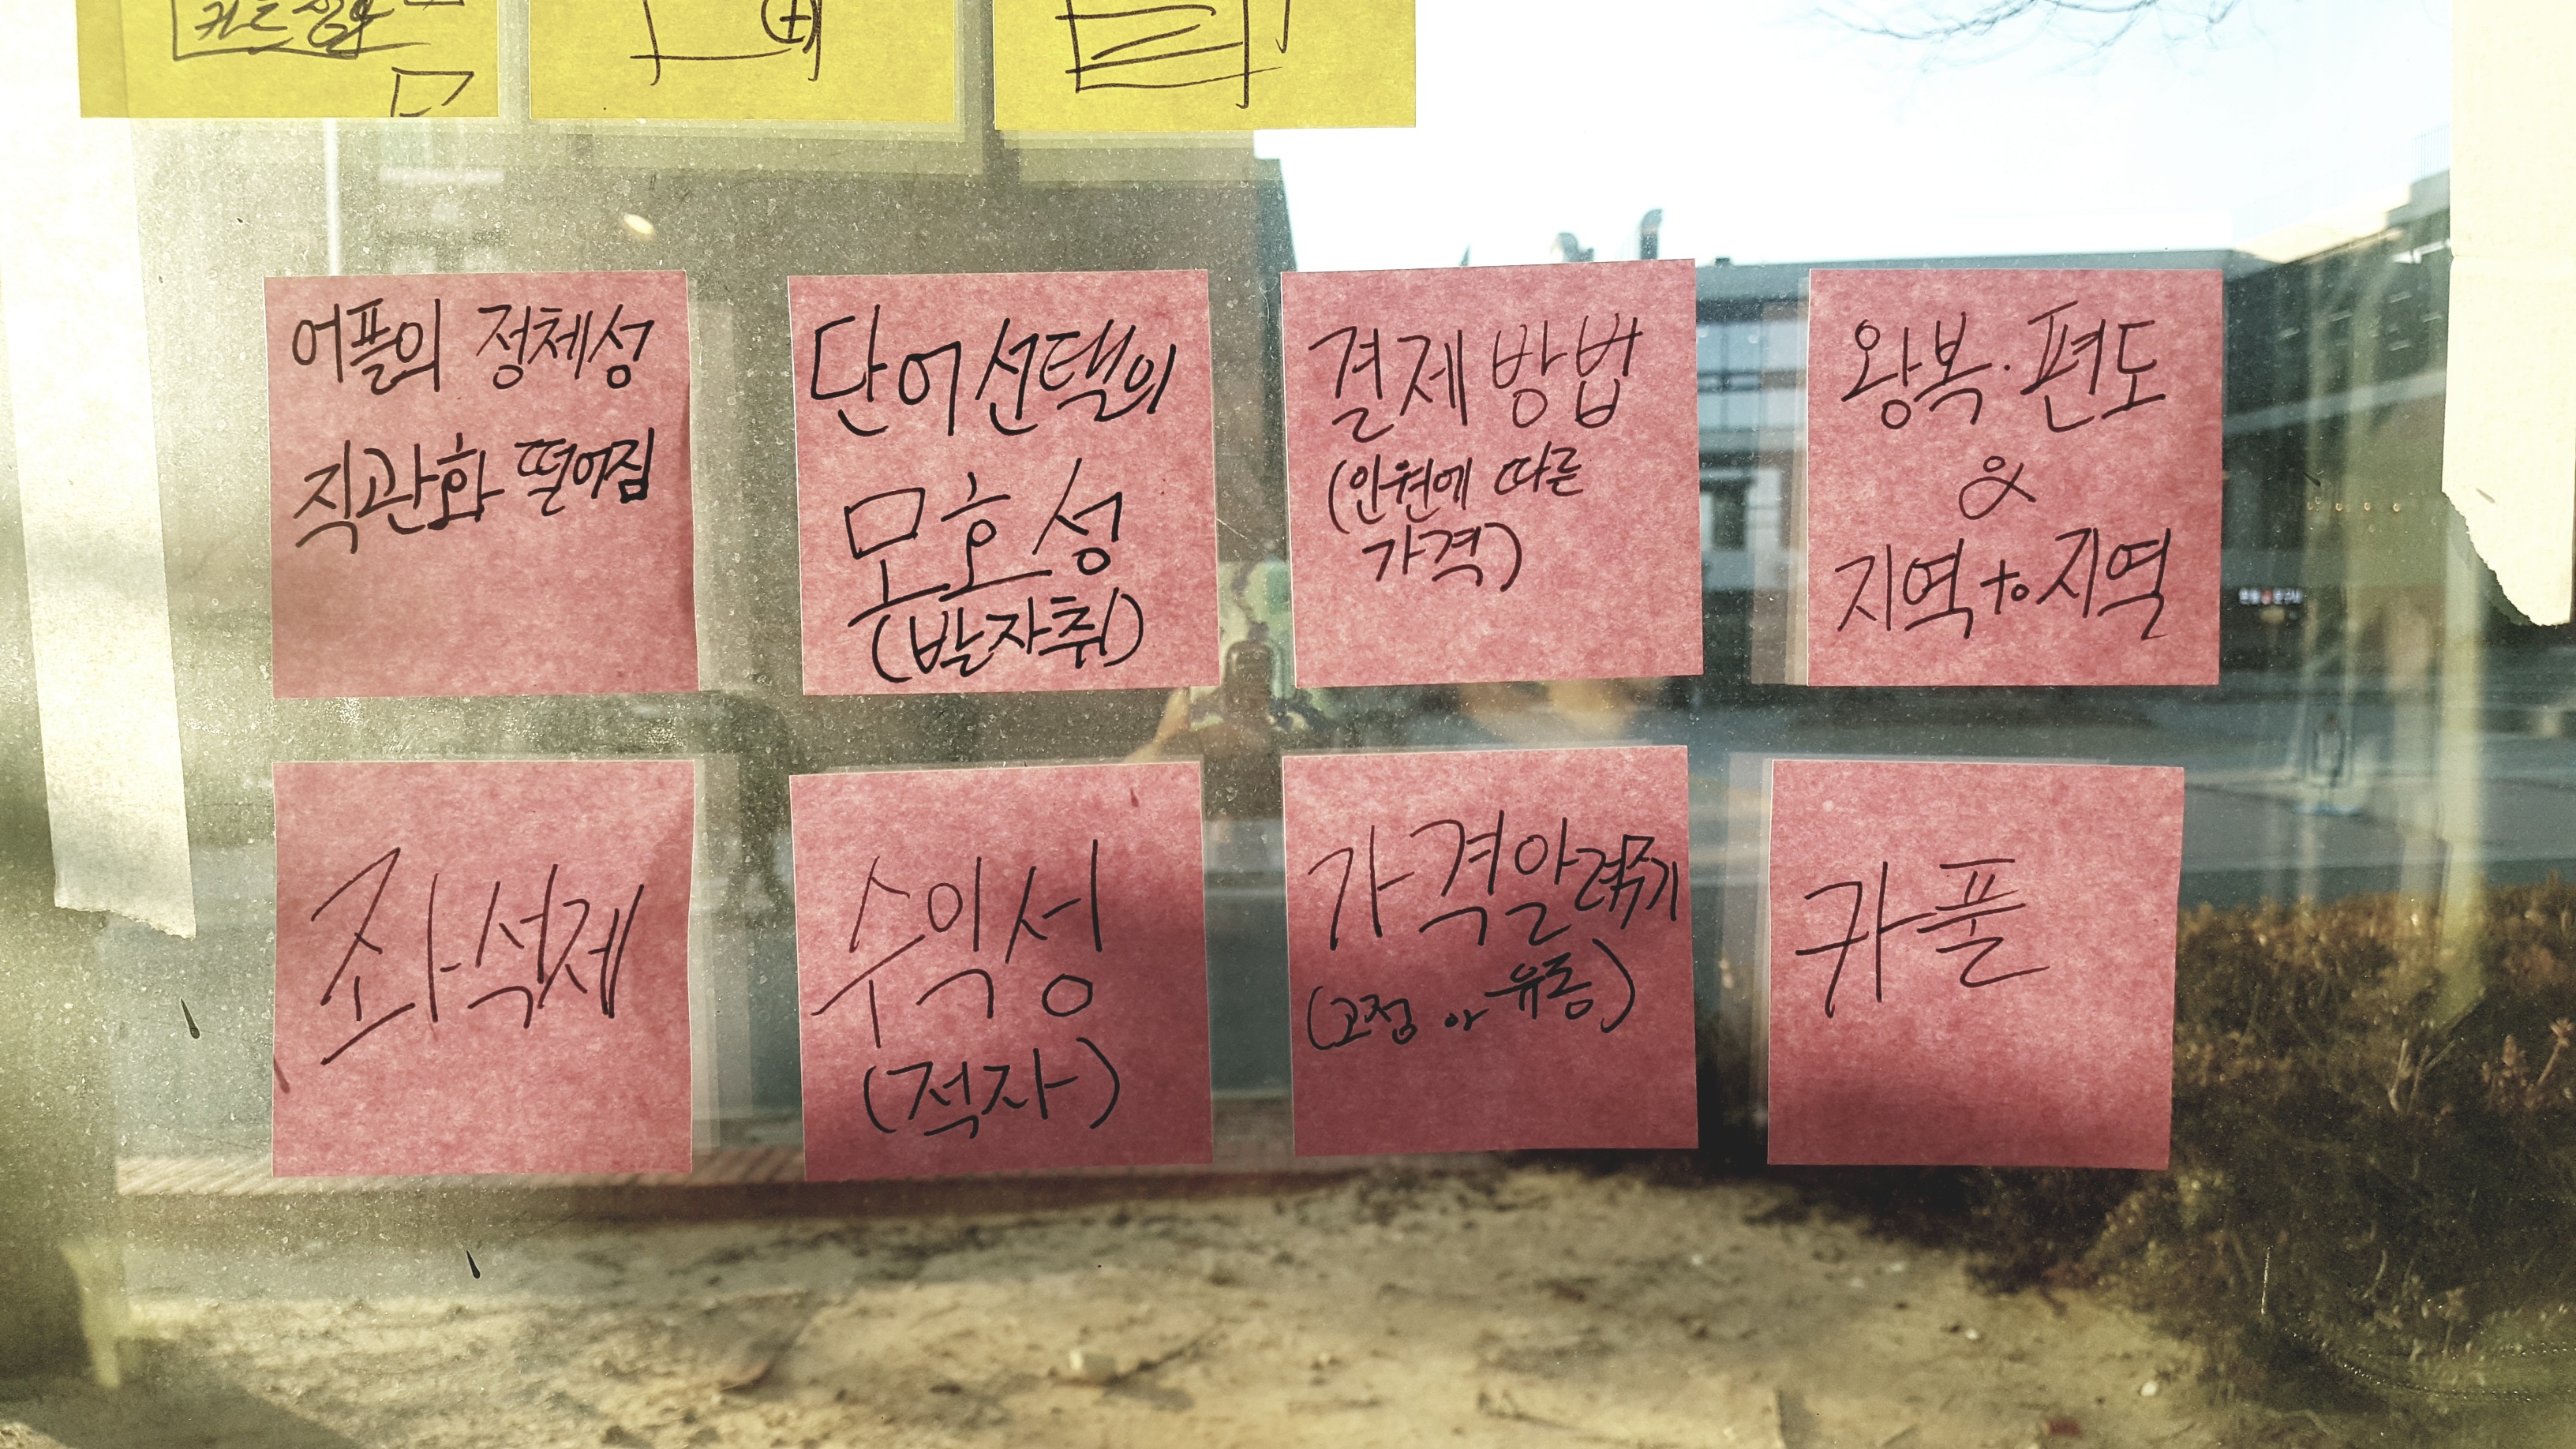 어플의 정체성
직관화 떨어짐
단어선택의
모호성
(발자취)
결제방법
(인원에 따른
가격)
왕복·편도
&
지역to지역
좌석제
수익성
(적자)
가격알려주기
(고정 or 유동)
카풀